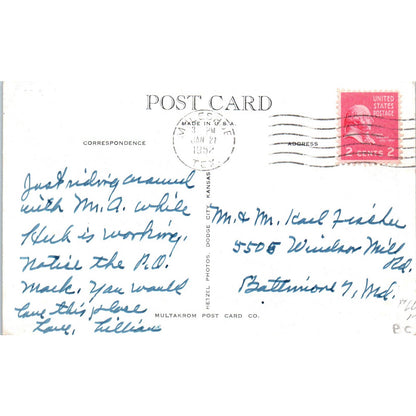 POST CARD
MADE IN U.S.A.
CORRESPONDENCE
ADDRESS
UNITED STATES POSTAGE
2 CENTS 2
PM
JAN 21
TEX
Just riding around
with Mr. A. while
Huk is working.
Notice the P.O.
Mark. You would
love this place
Love, Lillian
HETZEL PHOTOS, DODGE CITY, KANSAS
Mr. & Mr. Karl Fischer
5506 Windsor Mill
Rd.
Baltimore 7, Md.
MULTAKROM POST CARD CO.
P.C.